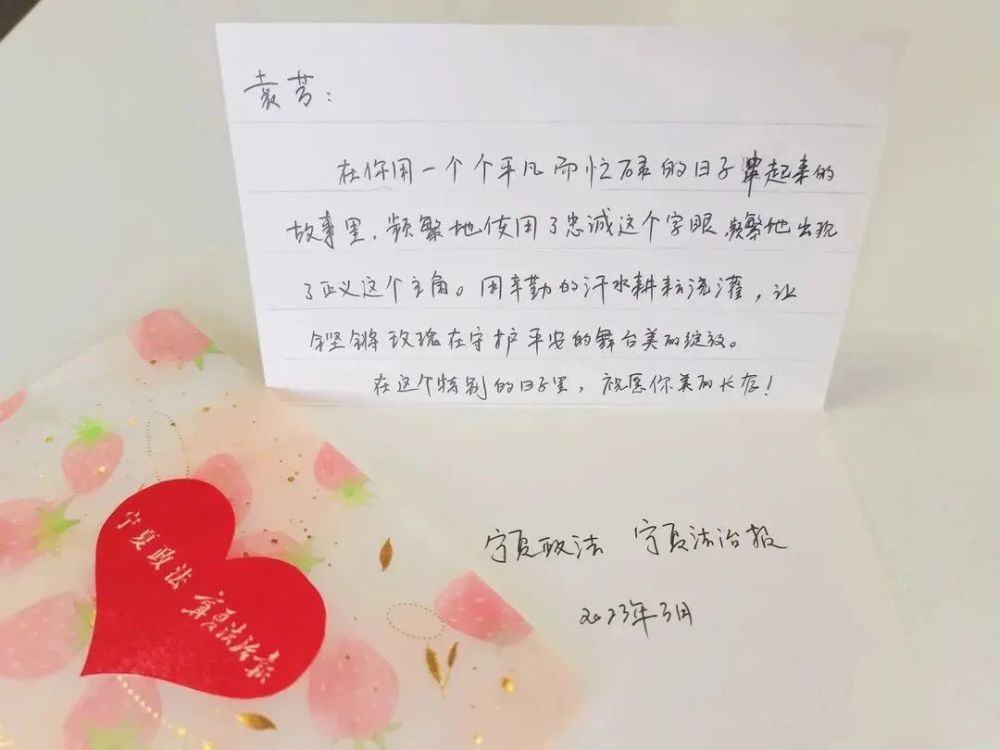 袁芳:
在你用一个个平凡而忙碌的日子串起来的
故事里，频繁地使用了忠诚这个字眼，频繁地出现
了正义这个主角。用辛勤的汗水耕耘浇灌，让
铿锵玫瑰在守护平安的舞台美丽绽放。
在这个特别的日子里，祝愿你美丽长存！
宁夏政法 宁夏法治报
2023年3月
宁夏政法 宁夏法治报